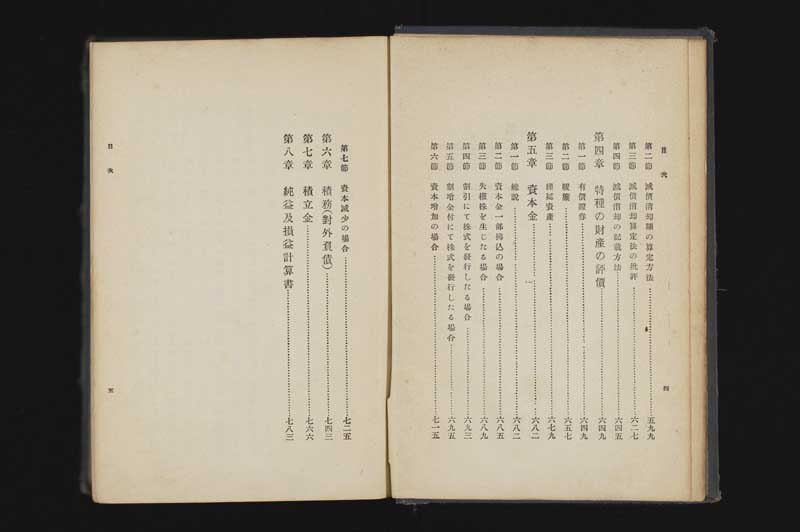 目次
第二節 減價消却額の算定方法……五九九
第三節 減價消却算定法の批評……六二七
第四節 減價消却の記載方法……六四五
第四章 特種の財産の評價……六四九
第一節 有價證券……六四九
第二節 暖簾……六五七
第三節 繰延資産……六七九
第五章 資本金……六八二
第一節 總說……六八二
第二節 資本金一部拂込の場合……六八五
第三節 失權株を生じたる場合……六八九
第四節 割引にて株式を發行したる場合……六九三
第五節 割增金付にて株式を發行したる場合……六九五
第六節 資本增加の場合……七一五
四
第七節 資本減少の場合……七二五
第六章 債務(對外負債)……七四三
第七章 積立金……七六六
第八章 純益及損益計算書……七八三
目次
五